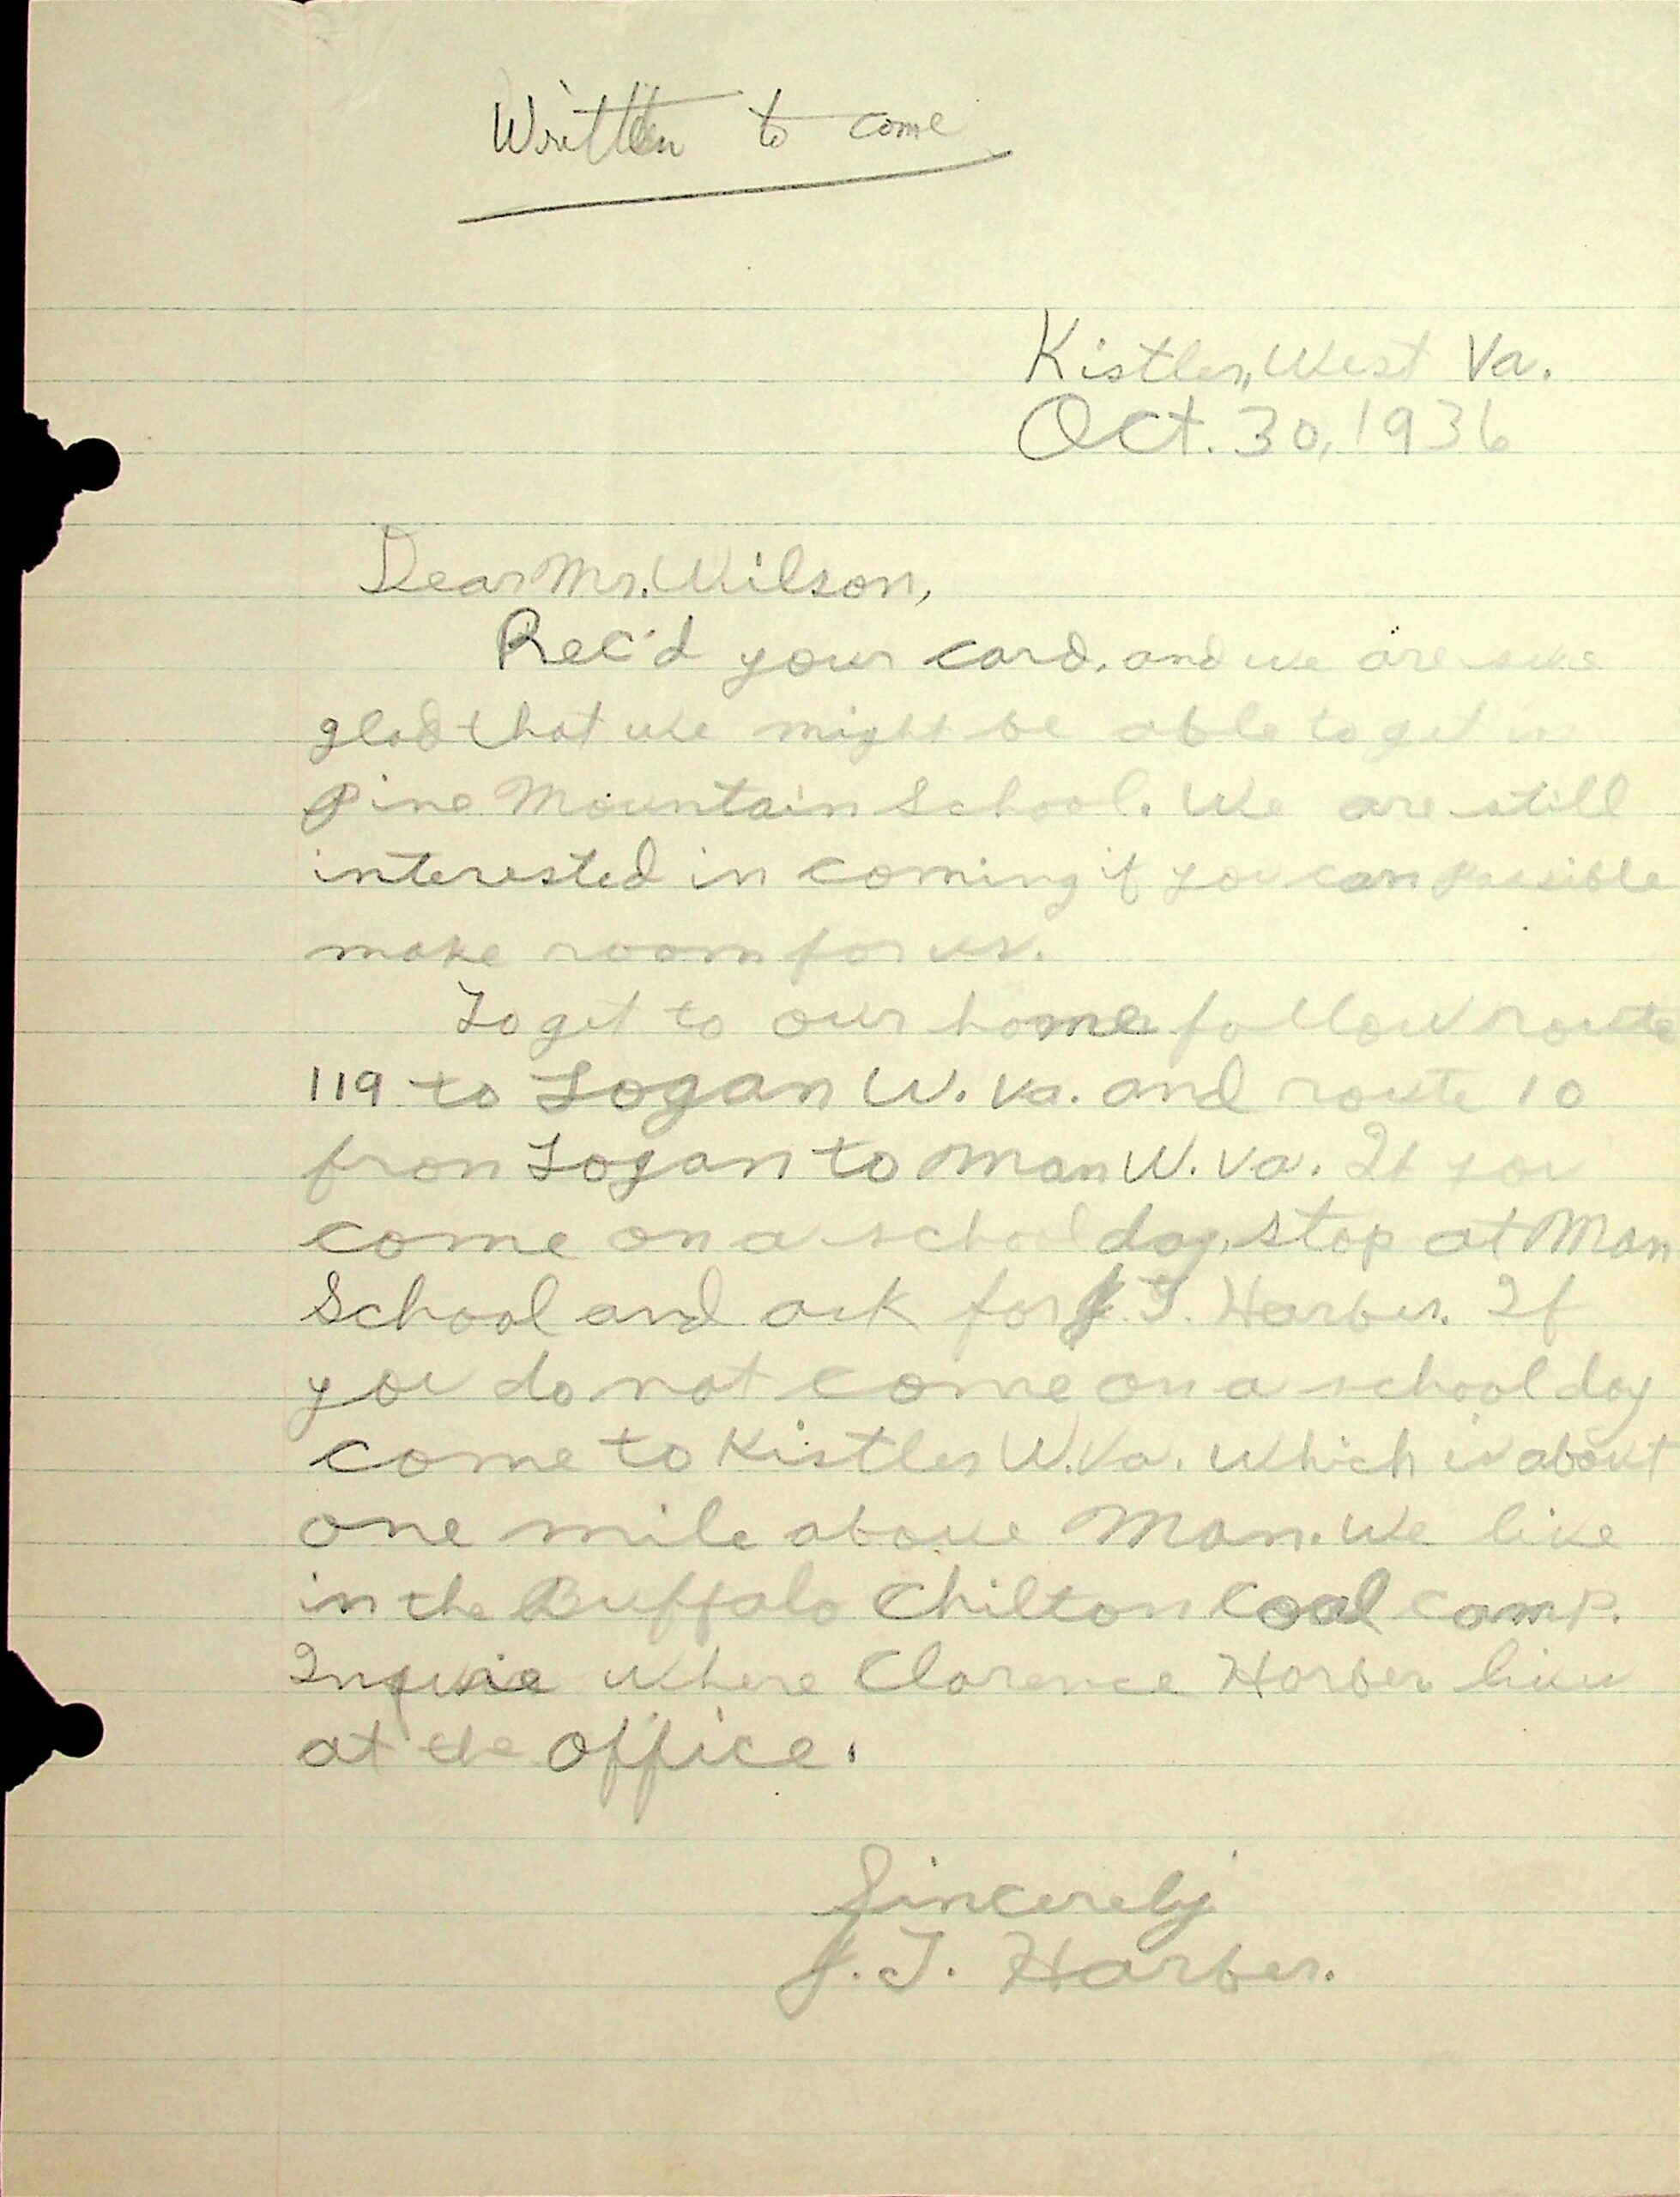 Written to come
Kistler, West Va.
Oct. 30, 1936
Dear Mr. Wilson,
Rec'd your card, and we are sure
glad that we might be able to get in
Pine Mountain School. We are still
interested in coming if you can possible
make room for us.
To get to our home follow route
119 to Logan W. Va. and route 10
from Logan to Man W. Va. If you
come on a school day, stop at Man
School and ask for J. T. Harber. If
you do not come on a school day
come to Kistler W. Va. which is about
one mile above Man. We live
in the Buffalo Chilton Coal Camp.
where Clarence Harber lives
at the office.
Sincerely
J. T. Harber.